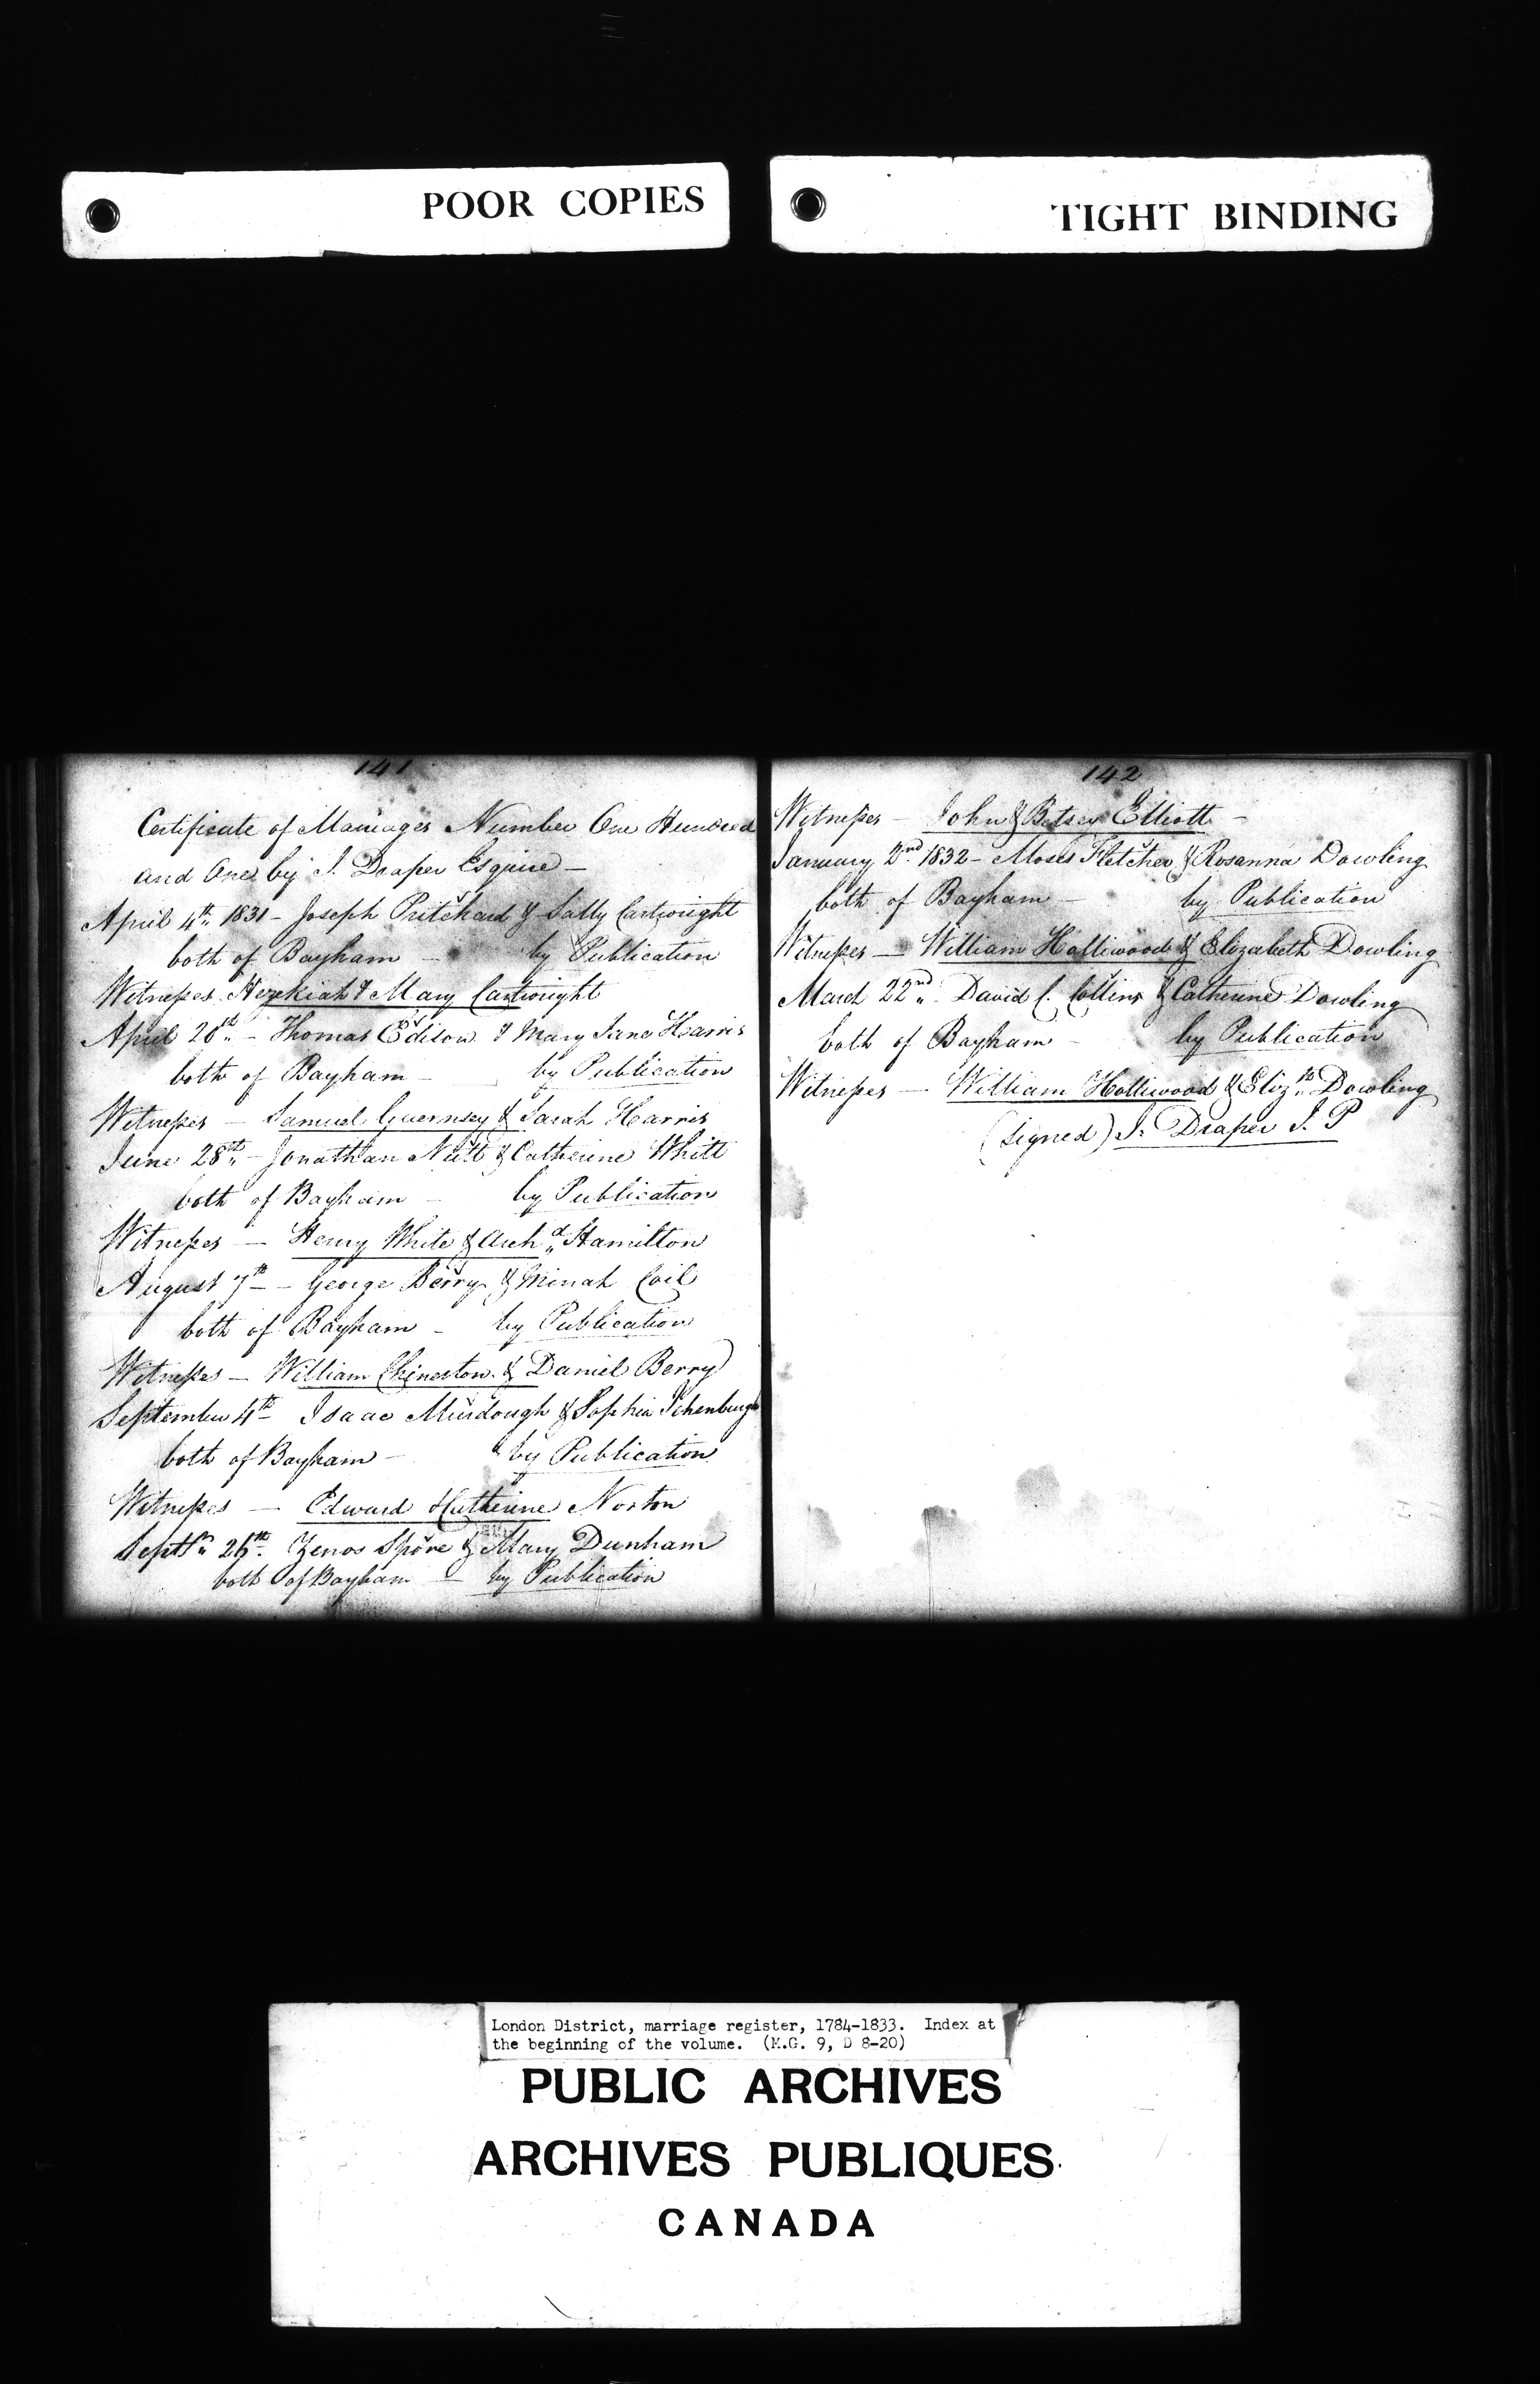 POOR COPIES
TIGHT BINDING
141
Certificate of Marriages Number One Hundred
and One by J. Draper Esquire —
April 4th 1831 – Joseph Pritchard & Sally Cartwright
both of Bayham – by Publication
Witnesses Hezekiah & Mary Cartwright
April 28th – Thomas Edison & Mary Jane Harris
both of Bayham – by Publication
Witnesses – Samuel Guernsey & Sarah Harris
June 28th – Jonathan Nutt & Catherine White
both of Bayham – by Publication
Witnesses — Henry White & Archd Hamilton
August 7th – George Berry & Minah Coil
both of Bayham – by Publication
Witnesses – William & Daniel Berry
September 4th Isaac Murdough & Sophia
both of Bayham – by Publication
Witnesses — Edward Norton
26th Zenos Spore & Mary Dunham
both of Bayham — by Publication
142
Witnesses – John & Betsey Elliott –
January 2nd 1832 – Moses Fletcher & Rosanna Dowling
both of Bayham – by Publication
Witnesses — William Holliwood & Elizabeth Dowling
March 22nd David C. Collins & Catherine Dowling
both of Bayham – by Publication
Witnesses — William Holliwood & Elizth Dowling
(Signed) J. Draper J. P
London District, marriage register, 1784-1833. Index at
the beginning of the volume. (M.G. 9, D 8-20)
PUBLIC ARCHIVES
ARCHIVES PUBLIQUES
CANADA